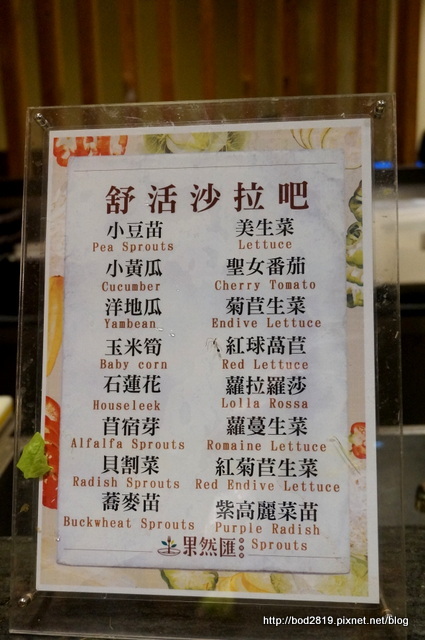 舒活沙拉吧
小豆苗
Pea Sprouts
美生菜
Lettuce
小黃瓜
Cucumber
聖女番茄
Cherry Tomato
洋地瓜
Yambean
菊苣生菜
Endive Lettuce
玉米筍
Baby corn
紅球萵苣
Red Lettuce
石蓮花
Houseleek
蘿拉羅莎
Lolla Rossa
苜宿芽
Alfalfa Sprouts
蘿蔓生菜
Romaine Lettuce
貝割菜
Radish Sprouts
紅菊苣生菜
Red Endive Lettuce
蕎麥苗
Buckwheat Sprouts
紫高麗菜苗
Purple Radish
Sprouts
果然匯
http://bod2819.pixnet.net/blog